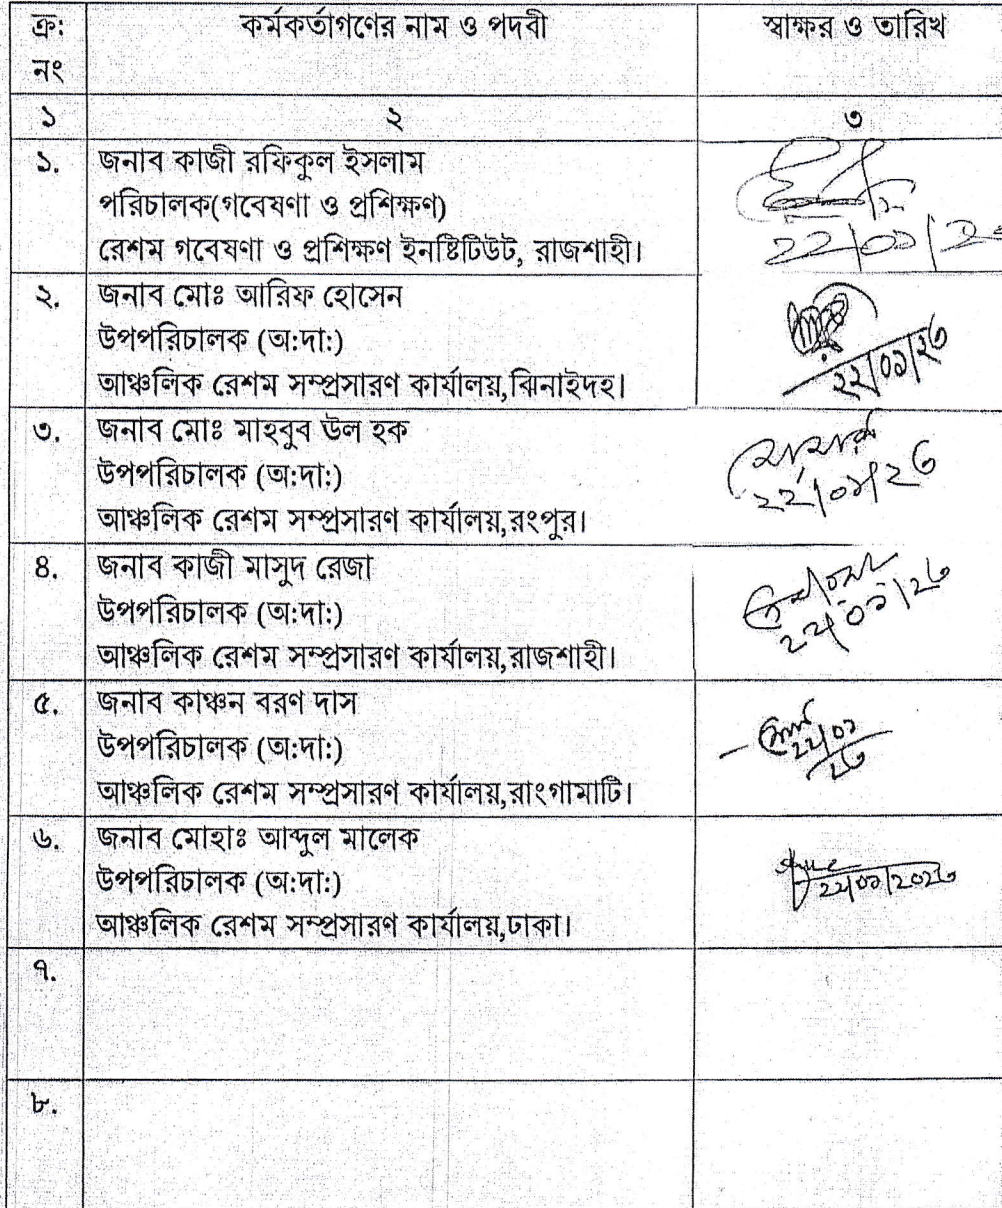 ক্র: কর্মকর্তাগণের নাম ও পদবী স্বাক্ষর ও তারিখ
নং
১ ২ ৩
১. জনাব কাজী রফিকুল ইসলাম
পরিচালক(গবেষণা ও প্রশিক্ষণ)
রেশম গবেষণা ও প্রশিক্ষণ ইনষ্টিটিউট, রাজশাহী।
২. জনাব মোঃ আরিফ হোসেন
উপপরিচালক (অ:দা:)
আঞ্চলিক রেশম সম্প্রসারণ কার্যালয়,ঝিনাইদহ।
২২|০১|২৩
৩. জনাব মোঃ মাহবুব উল হক
উপপরিচালক (অ:দা:)
আঞ্চলিক রেশম সম্প্রসারণ কার্যালয়,রংপুর।
২২|০১|২৩
৪. জনাব কাজী মাসুদ রেজা
উপপরিচালক (অ:দা:)
আঞ্চলিক রেশম সম্প্রসারণ কার্যালয়,রাজশাহী।
২২|০১|২৩
৫. জনাব কাঞ্চন বরণ দাস
উপপরিচালক (অ:দা:)
আঞ্চলিক রেশম সম্প্রসারণ কার্যালয়,রাংগামাটি।
২২|০১
২৩
৬. জনাব মোহাঃ আব্দুল মালেক
উপপরিচালক (অ:দা:)
আঞ্চলিক রেশম সম্প্রসারণ কার্যালয়,ঢাকা।
২২|০১|২০২৩
৭.
৮.